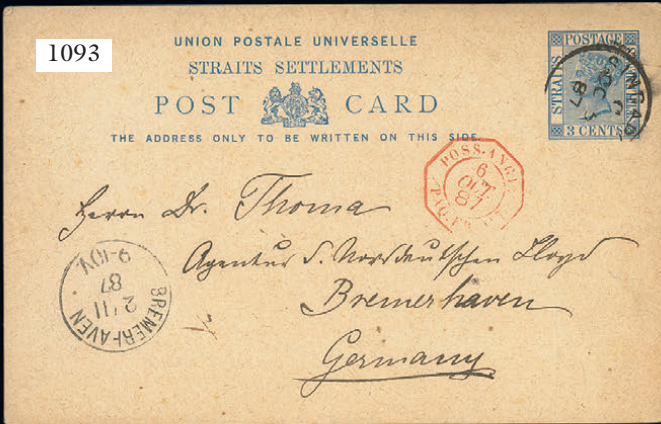 1093
UNION POSTALE UNIVERSELLE
STRAITS SETTLEMENTS
POST CARD
THE ADDRESS ONLY TO BE WRITTEN ON THIS SIDE.
STRAITS
POSTAGE
3 CENTS
87
POSS. ANGL.
6
OCT
87
PAQ. FR.
Herrn Dr. Thoma
Agentur d. Norddeutschen Lloyd
Bremerhaven
Germany
BREMERHAVEN
2 11
87
9-10V.